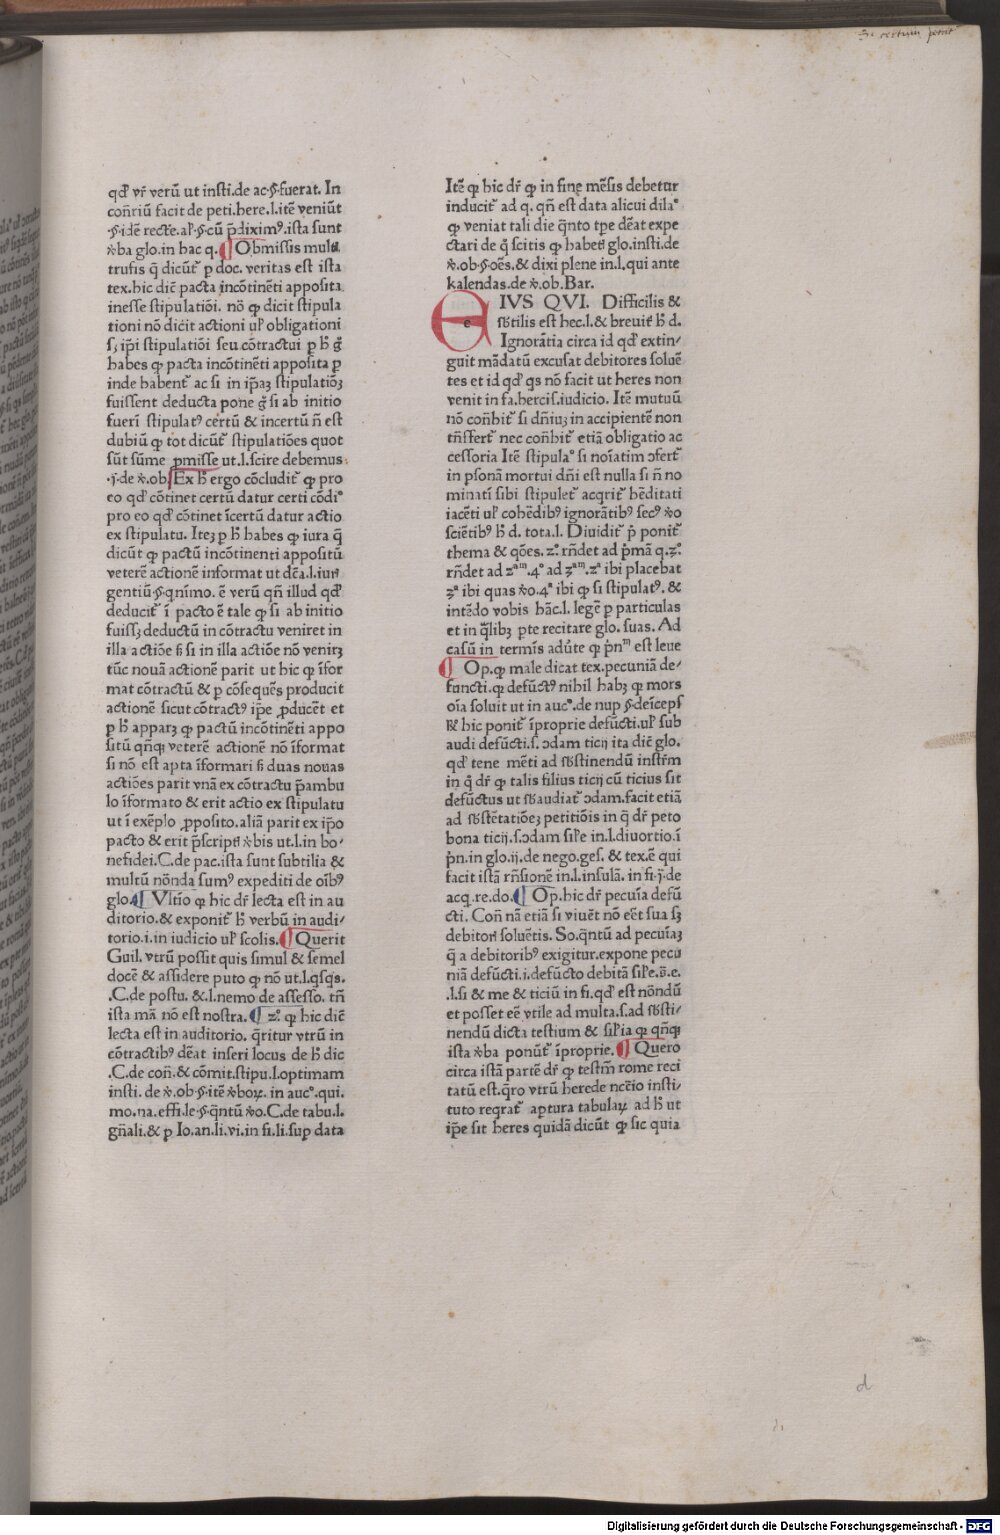 Si certum petat̃
qđ vr̃ verũ ut insti.de ac.§.fuerat. In
cõñriũ facit de peti.here.l.itẽ veniũt
.§.idẽ recte.al'.§.cũ p̃dixim⁹.ista sunt
v̾ba glo.in hac q. ¶ Obmissis mult
trufis q̃ dicũt̃ p doc. veritas est ista
tex.hic dič pacta incõtinẽti apposita
inesse stipulatiõi. nõ ꝙ dicit stipula
tioni nõ dicit actioni ul' obligationi
sꝫ ip̃i stipulatiõi seu cõtractui p h̃ g̃
habes ꝙ pacta incõtinẽti apposita p
inde habent̃ ac si in ip̃aꝫ stipulatiõꝫ
fuissent deducta pone g̃ si ab initio
fueri stipulat⁹ certũ & incertũ ñ est
dubiũ ꝙ tot dicũt̃ stipulatiões quot
sũt sũme p̱misse ut.l.scire debemus.
.j.de v̾.ob. Ex h̃ ergo cõcludit̃ ꝙ pro
eo qđ cõtinet certũ datur certi cõdi°
pro eo qđ cõtinet ĩcertũ datur actio
ex stipulatu. Iteꝫ p h̃ habes ꝙ iura q̃
dicũt ꝙ pactũ incõtinenti appositũ
veterẽ actionẽ informat ut dc̃a.l.iuri
gentiũ.§.qnimo. ẽ verũ qñ illud qđ
deducit̃ ĩ pacto ẽ tale ꝙ si ab initio
fuissꝫ deductũ in cõtractu veniret in
illa actiõe ß si in illa actiõe nõ venirꝫ
tũc nouã actionẽ parit ut hic ꝙ ĩfor
mat cõtractũ & p cõsequẽs producit
actionẽ sicut cõtract⁹ ip̃e p̱ducẽt et
p h̃ apparꝫ ꝙ pactũ incõtinẽti appo
sitũ qñqꝫ veterẽ actionẽ nõ ĩformat
si nõ est apta ĩformari ß duas nouas
actiões parit vnã ex cõtractu p̃ambu
lo ĩformato & erit actio ex stipulatu
ut ĩ exẽplo p̱posito.aliã parit ex ip̃o
pacto & erit p̃scripti v̾bis ut.l.in bo⸗
nefidei.C.de pac.ista sunt subtilia &
multũ nõnda sum⁹ expediti de oĩb⁹
glo. ¶ Vltĩo ꝙ hic dr̃ lecta est in au
ditorio.& exponit̃ h̃ verbũ in audi⸗
torio.i.in iudicio ul' scolis. ¶ Querit
Guil. vtrũ possit quis simul & semel
docẽ & assidere puto ꝙ nõ ut.l.qsqs.
.C.de postu. &.l.nemo de assesso. tñ
ista mã nõ est nostra. ¶ z°. ꝙ hic dič
lecta est in auditorio. q̃ritur vtrũ in
cõtractib⁹ dẽat inseri locus de h̃ dic
.C.de coñ.& cõmit.stipu.l.optimam
insti. de v̾.ob.§.itẽ v̾boꝝ. in auc°.qui.
mo.na.effi.le.§.q̃ntũ v̾o.C.de tabu.l.
gñali.& p Io.an.li.vi.in si.li.sup data
Itẽ ꝙ hic dr̃ ꝙ in fine mẽsis debetur
inducit̃ ad q. qñ est data alicui dila°
ꝙ veniat tali die q̃nto tp̃e dẽat expe
ctari de q̃ scitis ꝙ habeti glo.insti.de
v̾.ob.§.oẽs.& dixi plene in.l.qui ante
kalendas.de v̾.ob.Bar.
e IVS QVI. Difficilis &
sb̃tilis est hec.l.& breuit̃ h̃ d.
Ignorãtia circa id qđ extin⸗
guit mãdatũ excusat debitores soluẽ
tes et id qđ qs nõ facit ut heres non
venit in fa.hercis.iudicio. Itẽ mutuũ
nõ cõñhit̃ si dñiuꝫ in accipientẽ non
tñsfert̃ nec cõñhit̃ etiã obligatio ac
cessoria Itẽ stipula° si noĩatim ɔfert̃
in p̱sonã mortui dñi est nulla si ñ no
minatĩ sibi stipulet̃ acqrit̃ hẽditati
iacẽti ul' cohẽdib⁹ ignorãtib⁹ sec⁹ v̾o
sciẽtib⁹ h̃ d. tota.l. Diuidit̃ p̃ ponit̃
thema & qões. z°. rñdet ad p̃mã q.ʒ°.
rñdet ad zᵃᵐ.4° ad ʒᵃᵐ.zᵃ ibi placebat
ʒᵃ ibi quas v̾o.4ᵃ ibi ꝙ si stipulat⁹. &
intẽdo vobis hãc.l. legẽ p particulas
et in q̃libꝫ pte recitare glo. suas. Ad
casũ in termĩs adũte ꝙ p̃nᵐ est leue
¶ Op.ꝙ male dicat tex.pecuniã de⸗
functi.ꝙ defũct⁹ nihil habꝫ ꝙ mors
oĩa soluit ut in auc°.de nup §.deĩceps
R̃ hic ponit̃ ĩproprie defũcti.ul' sub
audi defũcti.s. ɔdam ticij ita dič glo.
qđ tene mẽti ad sb̃stinendũ instr̃m
in q̃ dr̃ ꝙ talis filius ticij cũ ticius sit
defũctus ut sb̃audiat̃ ɔdam.facit etiã
ad sb̃stẽtatiõeꝫ petitiõis in q̃ dr̃ peto
bona ticij.s.ɔdam sil'e in.l.diuortio.ĩ
p̃n.in glo.ij.de nego.ges. & tex.ẽ qui
facit istã rñsionẽ in.l.insulã. in fi.j.de
acq.re.do. ¶ Op.hic dr̃ pecuĩa defũ
cti. Coñ nã etiã si viuẽt nõ eẽt sua sꝫ
debitori soluẽtis. So.q̃ntũ ad pecuĩaꝫ
q̃ a debitorib⁹ exigitur.expone pecu
niã defũcti.i.defũcto debitã sil'e.s̃.e.
.l.si & me & ticiũ in fi.qđ est nõndũ
et posset eẽ vtile ad multa.s.ad sb̃sti⸗
nendũ dicta testium & sil'ia ꝙ qñqꝫ
ista v̾ba ponũt̃ ĩproprie. ¶ Quero
circa istã partẽ dr̃ ꝙ testm̃ rome reci
tatũ est.q̃ro vtrũ herede ncẽio insti⸗
tuto reqrat̃ aptura tabulaꝝ ad h̃ ut
ip̃e sit heres quidã dicũt ꝙ sic quia
d
Digitalisierung gefördert durch die Deutsche Forschungsgemeinschaft - DFG